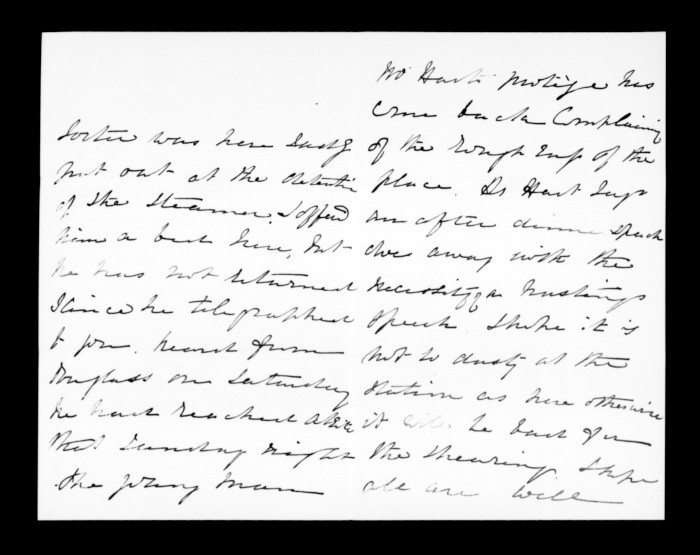 Porter was here Sadly
put out at the detention
of the Steamer. I offered
him a bed here, but
he has not returned
since he telegraphed
to you. heard from
Douglass on Saturday
he had reached
that Sunday night
the young man
Mr Harts protége has
come back Complaining
of the rough ways of the
place. As Hart says
an after dinner speech
does away with the
necessity of a hustings
speech. I hope it is
not so dusty at the
Station as here otherwise
it will be bad for
the shearing. I hope
all are well